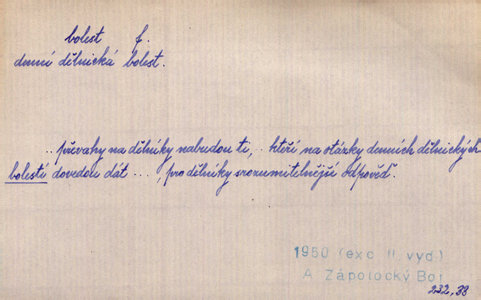 bolest f.
denní dělnická bolest.
.. převahy na dělníky nabudou ti, .. kteří na otázky denních dělnických
bolestí dovedou dát ..., pro dělníky srozumitelnější odpověď.
1950 (exc II. vyd)
A Zápotocký Boj
232, 38